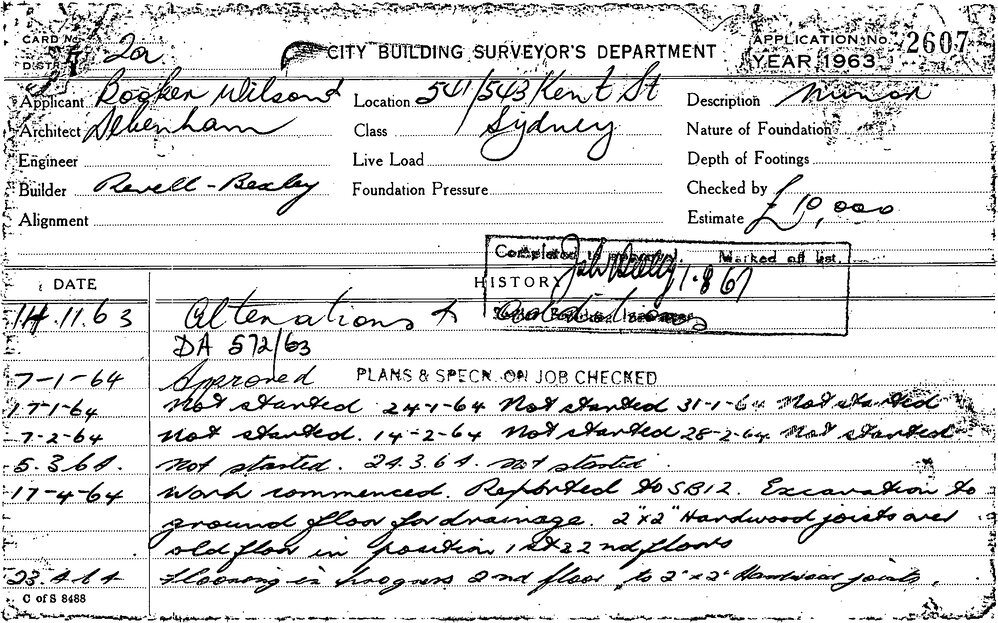 CARD No. 2a
DIST.
CITY BUILDING SURVEYOR'S DEPARTMENT
APPLICATION No. 2607
YEAR 1963
Applicant Booker Wilson
Location 541/543 Kent St
Description Minor
Architect Debenham
Class Sydney
Nature of Foundation
Engineer
Live Load
Depth of Footings
Builder Revell - Bexley
Foundation Pressure
Checked by
Alignment
Estimate £10,000
Completed as approved. Marked off list.
1.8 67
DATE
HISTORY
14.11.63 Alterations & additions
DA 572/63
7-1-64 Approved PLANS & SPECN. ON JOB CHECKED
17-1-64 Not started 24-1-64 Not started 31-1-64 Not started
7-2-64 Not started. 14-2-64 Not started 28-2-64 Not started
5.3.64. Not started. 24.3.64. Not started.
17-4-64 Work commenced. Reported to SB12. Excavation to
ground floor for drainage. 2"x2" Hardwood joists over
old floor in position 1st & 2nd floors
23.4.64 Flooring in progress 2nd floor to 2"x2" Hardwood joists.
C of S 8488